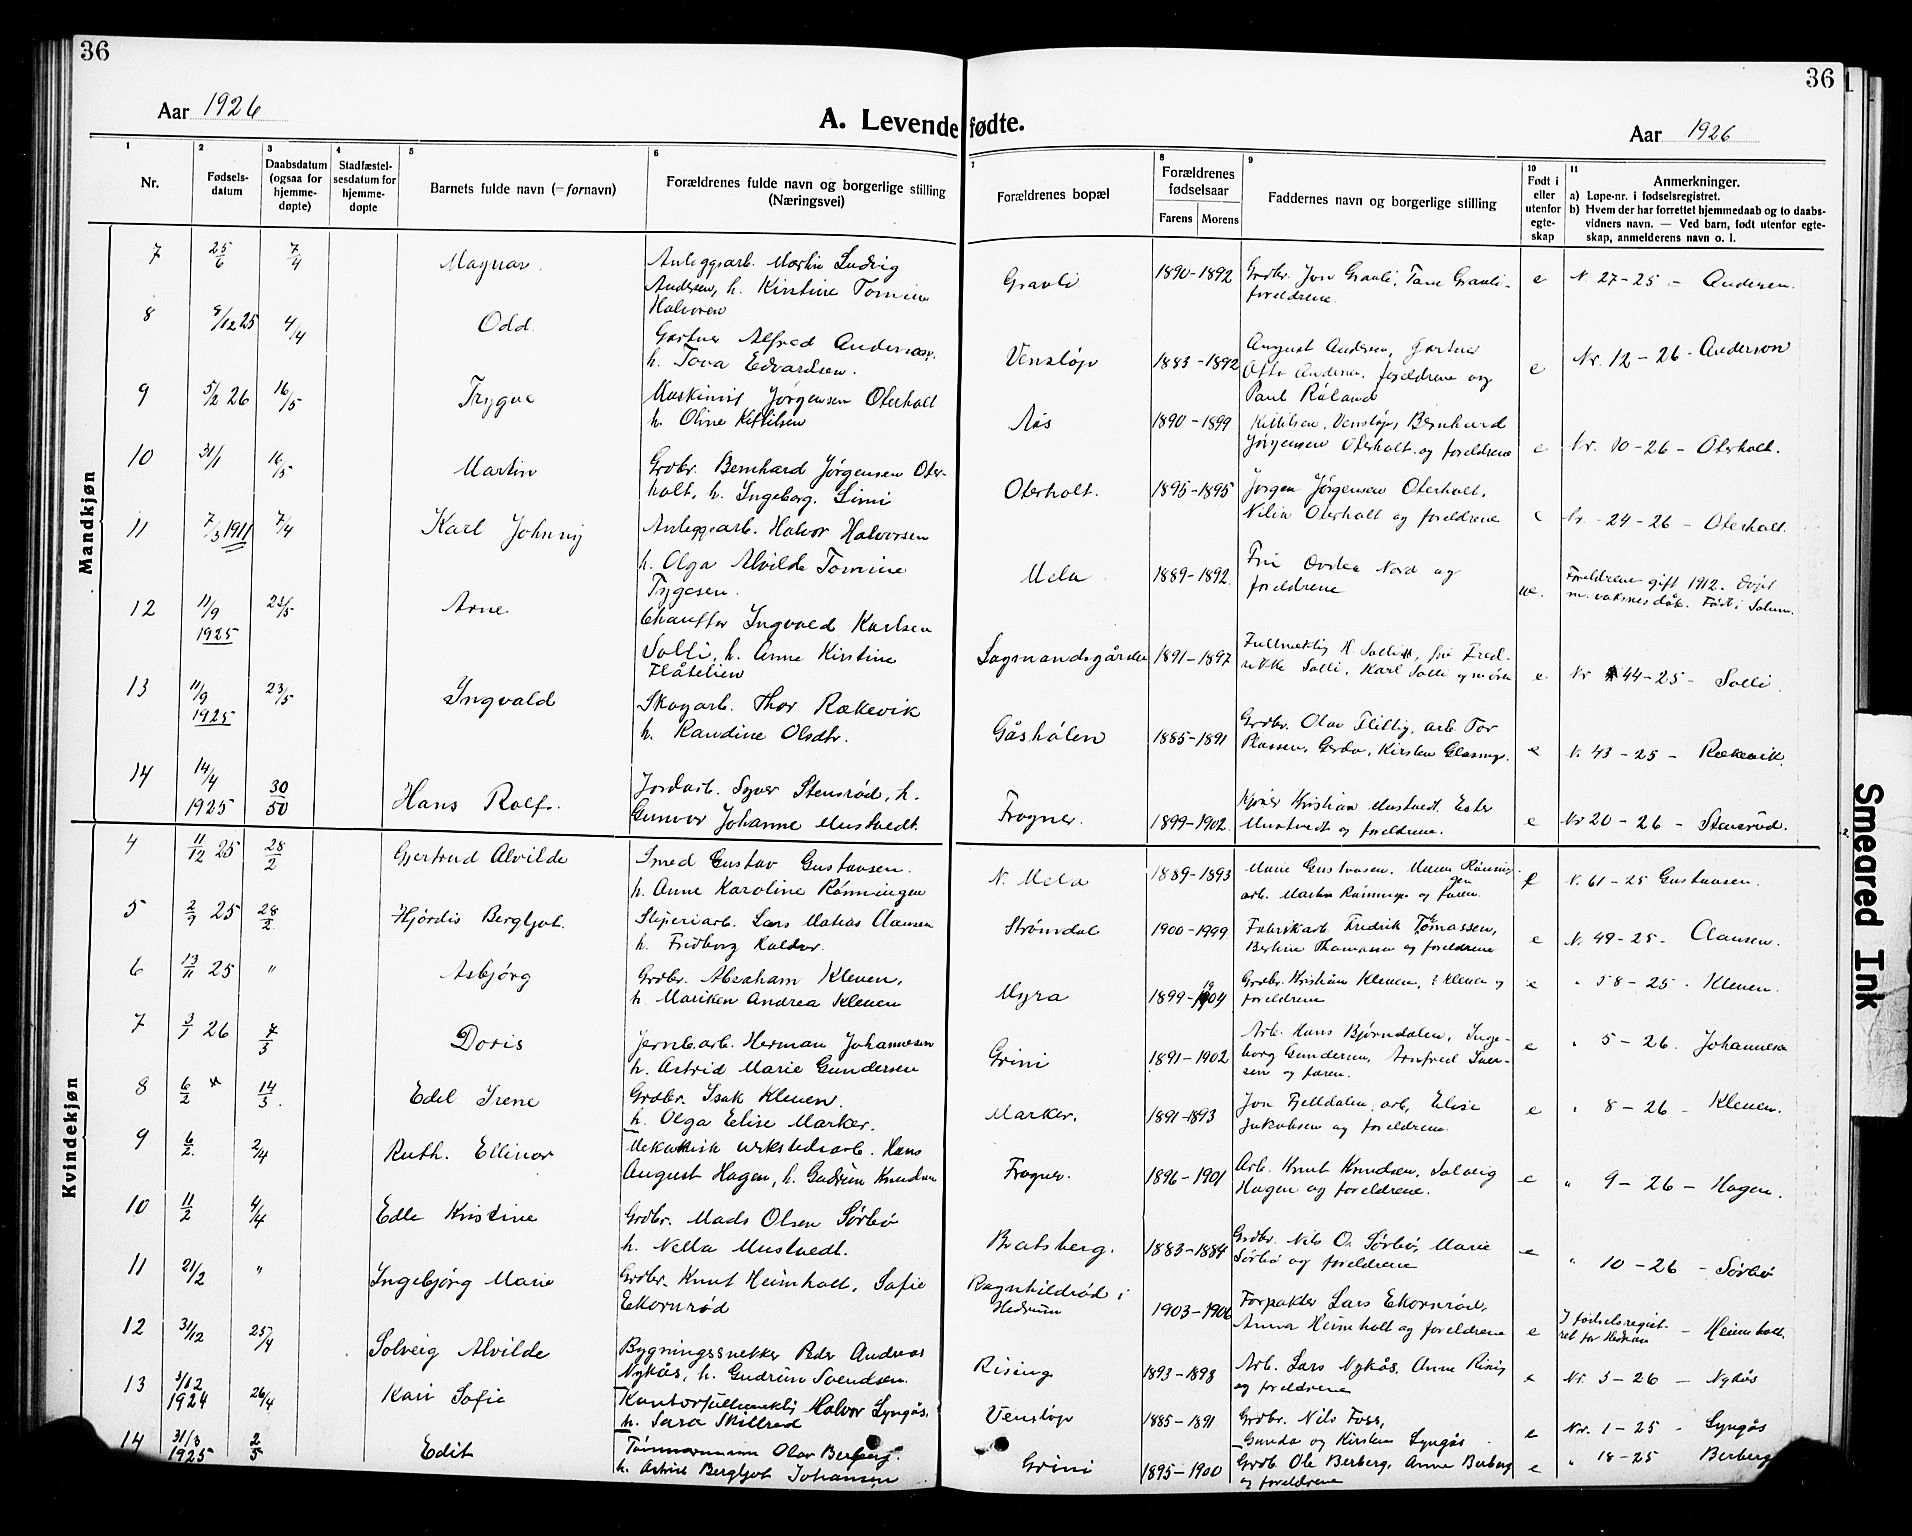 36
36
Aar 1926
A. Levende fødte.
Aar 1926
1 Nr.
2 Fødsels-datum
3 Daabsdatum (ogsaa for hjemme-døpte)
4 Stadfæstel-sesdatum for hjemme-døpte
5 Barnets fulde navn (= fornavn)
6 Forældrenes fulde navn og borgerlige stilling (Næringsvei)
7 Forældrenes bopæl
8 Forældrenes fødselsaar Farens Morens
9 Faddernes navn og borgerlige stilling
10 Født i eller utenfor egte-skap
11 Anmerkninger.
a) Løpe-nr. i fødselsregistret.
b) Hvem der har forrettet hjemmedaab og to daabs-vidners navn. — Ved barn, født utenfor egte-skap, anmelderens navn o. l.
Mandkjøn
7 25/6 7/4 Magnar. Anleggsarb. Martin Ludvig Gravli 1890-1892 Grdbr. Jon Gravli, Tane Gravli- e N. 27-25 - Andersen.
Andersen, h. Kirstine Tomine foreldrene.
Halvorsen
8 9/12 25 4/4 Odd. Gartner Alfred Andersen, Venstøp 1883-1892 August Andersen, gartner e Nr. 12-26 - Anderson
h. Tova Edvardsen. Otto Andersen, foreldrene og
Paul Råland
9 5/2 26 16/5 Trygve Maskinist Jørgensen Oterholt Ås 1890-1899 Kittilsen, Venstøp, Bernhard e Nr. 10-26 - Oterholt.
h. Oline Kittilsen Jørgensen Oterholt og foreldrene
10 31/1 16/5 Martin Grdbr. Bernhard Jørgensen Oter- Oterholt. 1895-1895 Jørgen Jørgensen Oterholt, e Nr. 24-26 - Oterholt.
holt, h. Ingeborg Limi Nilia Oterholt og foreldrene
11 7/3 1911 7/4 Karl Johnny Anleggsarb. Halvor Halvorsen Mela 1889-1892. Fru Nord og ue. Foreldrene gift 1912. Døpt
h. Olga Alvilde Tomine foreldrene m. voksnes dåb. Født i Solum.
Trygesen.
12 11/9 1925 23/5 Arne Chauffør Ingvald Karlsen Sagmandsgården 1891-1897 Fullmektig H. Solli, fru Fred- e Nr 44-25 - Solli.
Solli, h. Anne Kirstine rikke Solli, Karl Solli og moren
Flåtelien
13 11/9 1925 23/5 Ingvald Skogarb. Thor Rækevik Gåshølen 1885-1891 Grdbr. Olav Flittig, arb. Tor e N. 43-25 - Rækevik.
h. Randine Olsdtr. Plassen, Gerda, Kirsten
14 14/4 1925 30/50 Hans Rolf. Jordarb. Syver Stensrød, h. Frogner. 1899-1902. Kjører Kristian Mustvedt, Ester e Nr 20-26 - Stensrød.
Gunvor Johanne Mustvedt. Mustvedt og foreldrene.
Kvindekjøn
4 11/12 25 28/2 Gjertrud Alvilde Smed Gustav Gustavsen. N. Mela 1889-1893 Marie Gustavsen, Maren Rønnin- e N. 61-25 Gustavsen.
h. Anne Karoline Rønningen gen arb. Martin Rønningen og faren.
5 2/9 25 28/2 Hjørdis Bergljot. Sliperiarb. Lars Matias Clausen Strømdal 1900-1999 Fabrikarb. Fredrik Tomassen, e N. 49-25. Clausen.
h. Fridborg Kaldvr. Bertine Thomassen og foreldrene
6 13/11 25 " Asbjørg Grdbr. Abraham Kleven, Myra 1899-1904 Grdbr. Kristian Kleven, Kleven og e " 58-25 - Kleven.
h. Mariken Andrea Kleven foreldrene
7 3/1 26 7/3 Doris Jernb.arb. Herman Johannesen Grini 1891-1902 Arb. Hans Bjørndalen, Inge- e " 5-26. Johannesen
h. Astrid Marie Gundersen borg Gundersen, Arnfred Iver-
sen og faren.
8 6/2 14/3. Edel Irene Grdbr. Isak Kleven. Marker. 1891-1893 Jon Fjelldalen, arb, Elise e " 8-26 - Kleven.
h. Olga Elise Marker. Jakobsen og foreldrene.
9 6/2. 2/4 Ruth. Ellinor Mekanisk verkstedsarb. Hans Frogner. 1896-1901 Arb. Knut Knudsen, Solveig e " 9-26 - Hagen.
August Hagen, h. Gudrun Knudsen Hagen og foreldrene.
10 11/2 4/4 Edle Kristine Grdbr. Mads Olsen Sørbø Bratsberg. 1883-1884 Grdbr. Nils O. Sørbø, Marie e " 10-26 - Sørbø
h. Nella Mustvedt. Sørbø og foreldrene
11 21/2 " Ingebjørg Marie Grdbr. Knut Heimholt, Sofie Ragnhildrød i 1903-1906 Forpakter Lars Ekornrød, e I fødselsregist-
Ekornrød Hedrum Anna Heimholt og foreldrene ret for Hedrum - Heimholt.
12 31/12 25/4 Solveig Alvilde Bygningssnekker Peder Andreas Rising 1893-1898 Arb. Lars Nykås, Anne Rising e Nr. 5-26 - Nykås
Nykås, h. Gudrun Svendsen. og foreldrene
13 3/12 1924 26/4 Kari Sofie Kontorfullmektig Halvor Lyngås, Venstøp 1885-1891 Grdbr. Nils Foss, e Nr. 1-25 - Lyngås
h. Sara Skilbred Gunda og Kirsten Lyngås.
14 31/3 1925 2/5 Edit Tømmermann Olav Berberg. Grini 1895-1900 Grdb. Ole Berberg, Anne Berberg e " 18-25 Berberg
h. Astrid Bergljot Johansen og foreldrene
Smeared Ink